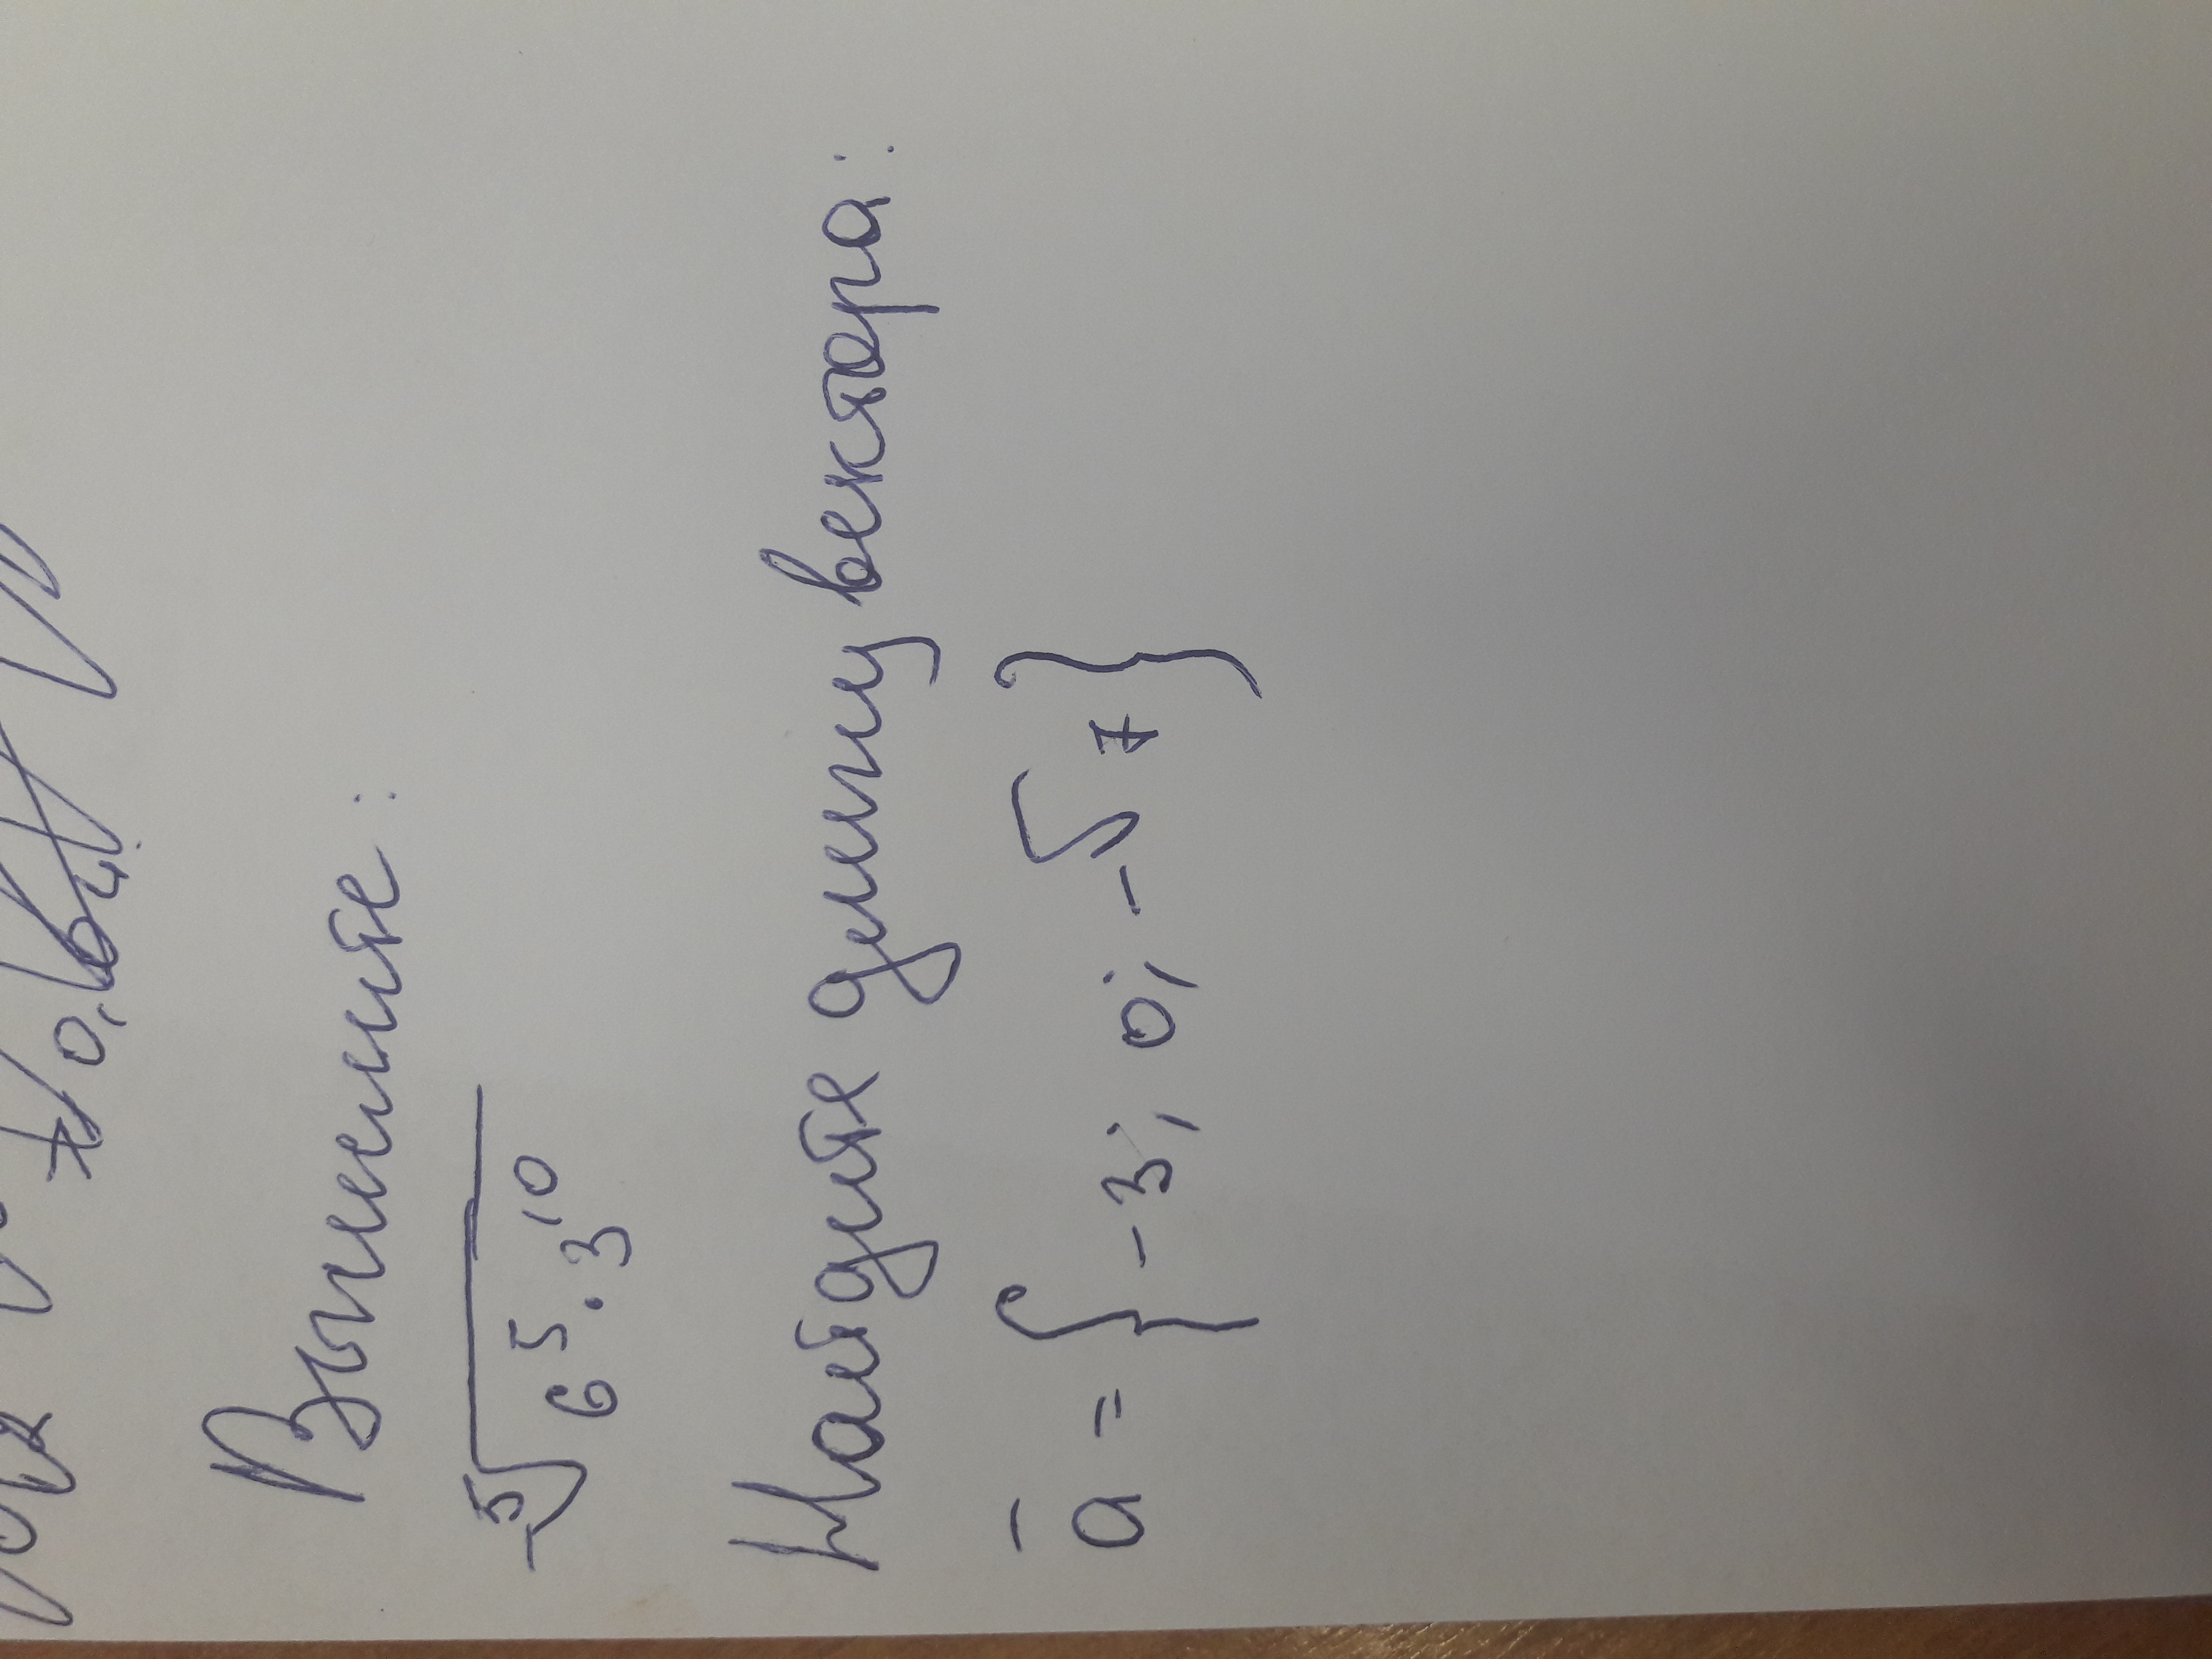 Вычислите:
-⁵√6⁵·3¹⁰
Найдите длину вектора:
a̅ = {-3; 0; -√7}